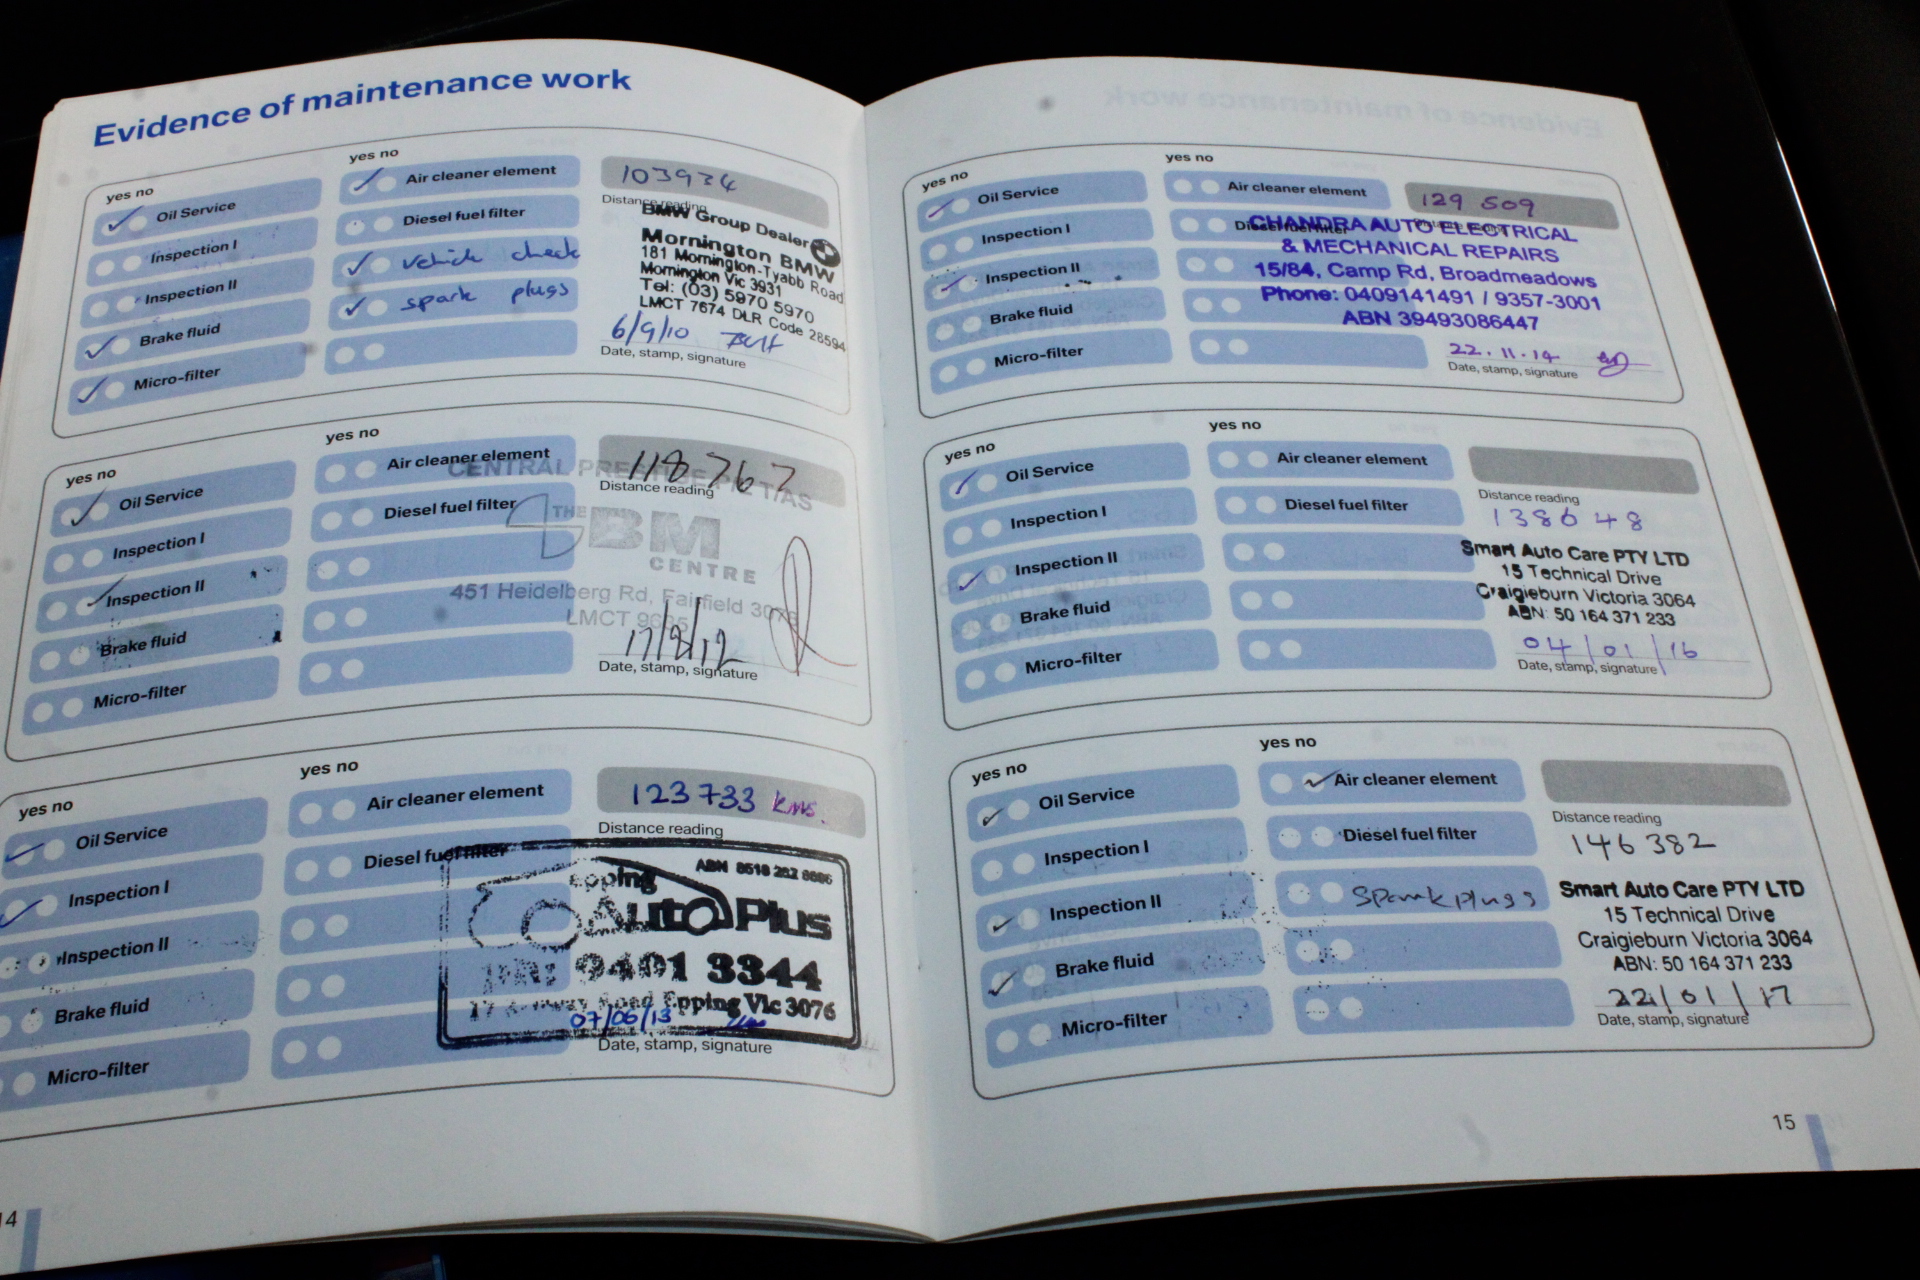 Evidence of maintenance work
yes no
Oil Service
Inspection I
Inspection II
Brake fluid
Micro-filter
yes no
Air cleaner element
Diesel fuel filter
vehicle check
spark plugs
103934
Distance reading
BMW Group Dealer
Mornington BMW
181 Mornington-Tyabb Road
Mornington Vic 3931
Tel: (03) 5970 5970
LMCT 7674 DLR Code 28594
6/9/10
Date, stamp, signature
yes no
Oil Service
Inspection I
Inspection II
Brake fluid
Micro-filter
yes no
Air cleaner element
Diesel fuel filter
118767
Distance reading
CENTRAL PRESTIGE P/L T/AS
THE
BM
CENTRE
451 Heidelberg Rd, Fairfield 3078
LMCT
Date, stamp, signature
yes no
Oil Service
Inspection I
Inspection II
Brake fluid
Micro-filter
yes no
Air cleaner element
Diesel fuel filter
123733 kms.
Distance reading
ABN
Epping
Auto Plus
9401 3344
Road Epping Vic 3076
07/06/13
Date, stamp, signature
14
yes no
Oil Service
Inspection I
Inspection II
Brake fluid
Micro-filter
yes no
Air cleaner element
Diesel fuel filter
129 509
CHANDRA AUTO ELECTRICAL
& MECHANICAL REPAIRS
15/84, Camp Rd, Broadmeadows
Phone: 0409141491 / 9357-3001
ABN 39493086447
22.11.14
Date, stamp, signature
yes no
Oil Service
Inspection I
Inspection II
Brake fluid
Micro-filter
yes no
Air cleaner element
Diesel fuel filter
Distance reading
138648
Smart Auto Care PTY LTD
15 Technical Drive
Craigieburn Victoria 3064
ABN: 50 164 371 233
04/01/16
Date, stamp, signature
yes no
Oil Service
Inspection I
Inspection II
Brake fluid
Micro-filter
yes no
Air cleaner element
Diesel fuel filter
Spark plugs
Distance reading
146382
Smart Auto Care PTY LTD
15 Technical Drive
Craigieburn Victoria 3064
ABN: 50 164 371 233
22/01/17
Date, stamp, signature
15